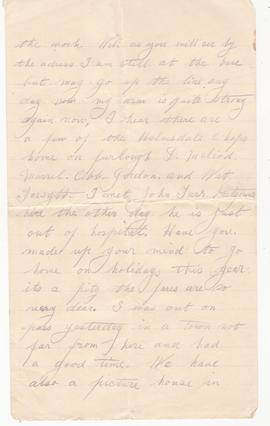 the work. Well as you will see by
the adress I am still at the base
but may go up the line any
day now my arm is quite strong
again now, I hear there are
a few of the Helmsdale chaps
home on furlough D. McLeod.
Gordon, and
Forsyth. I met John
here the other day he is just
out of hospital. Have you
made up your mind to go
home on holiday, this year
its a pity the fares are so
very dear. I was out on
pass yesterday in a town not
far from here and had
a good time. We have
also a picture house in